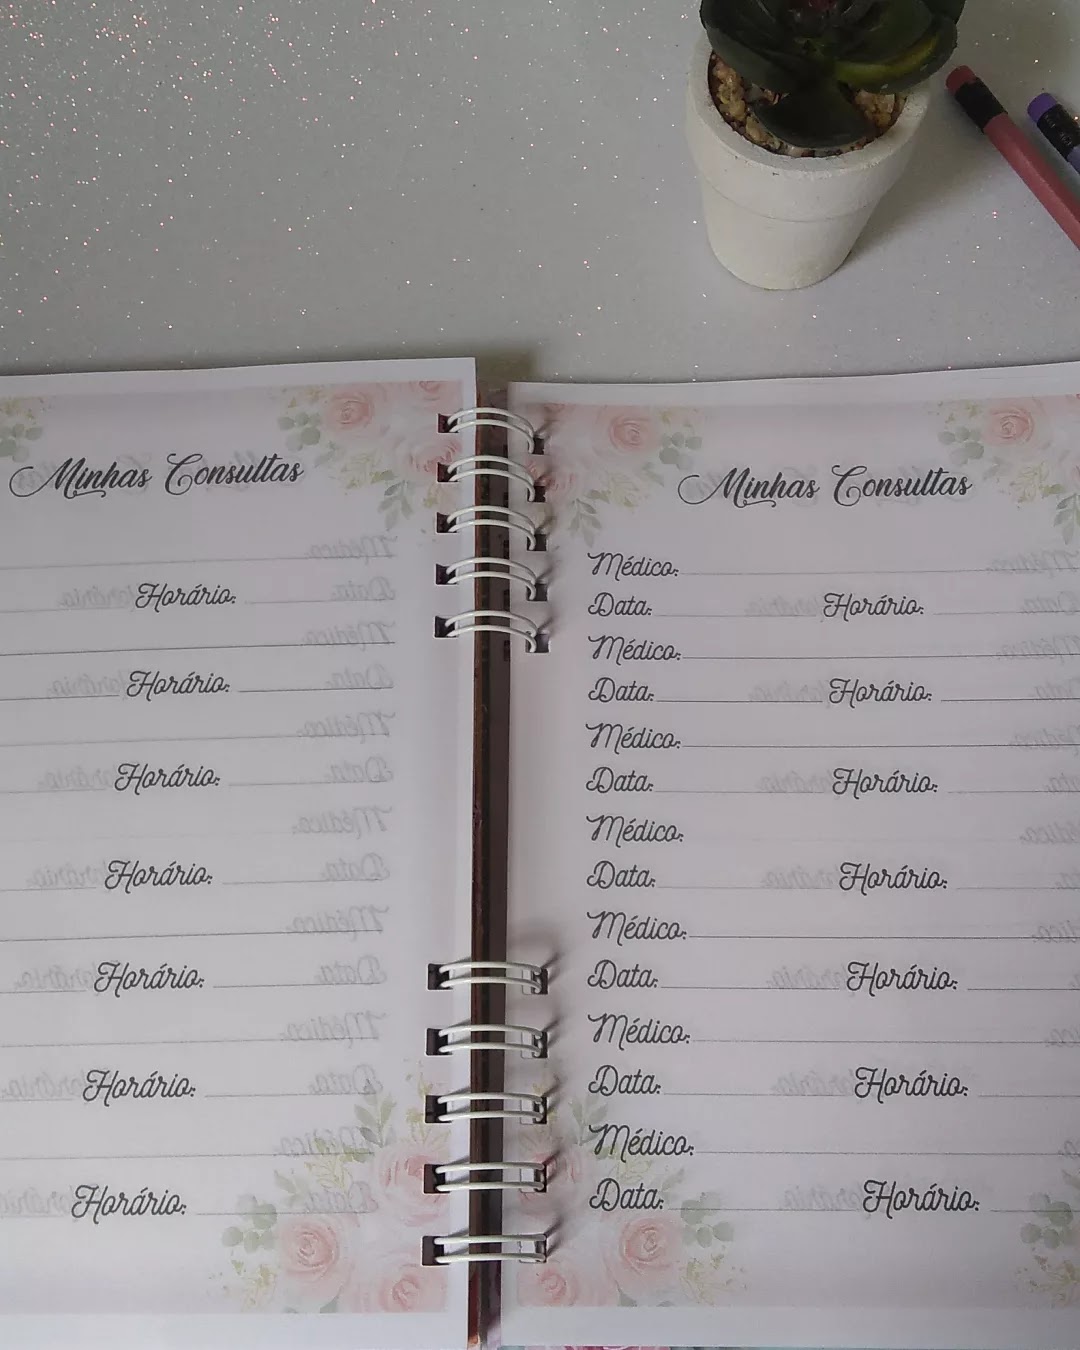 Minhas Consultas
Horário:
Horário:
Horário:
Horário:
Horário:
Horário:
Horário:
Minhas Consultas
Médico:
Data: Horário:
Médico:
Data: Horário:
Médico:
Data: Horário:
Médico:
Data: Horário:
Médico:
Data: Horário:
Médico:
Data: Horário:
Médico:
Data: Horário: